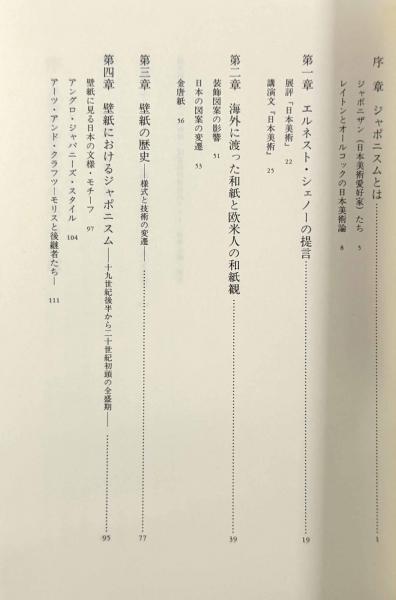 序章 ジャポニスムとは……………………1
ジャポニザン(日本美術愛好家)たち 5
レイトンとオールコックの日本美術論 8
第一章 エルネスト・シェノーの提言……………………19
展評「日本美術」 22
講演文『日本美術』 25
第二章 海外に渡った和紙と欧米人の和紙観……………………39
装飾図案の影響 51
日本の図案の変遷 53
金唐紙 56
第三章 壁紙の歴史――様式と技術の変遷――……………………77
第四章 壁紙におけるジャポニスム――十九世紀後半から二十世紀初頭の全盛期――……………………95
壁紙に見る日本の文様・モチーフ 97
アングロ・ジャパニーズ・スタイル 104
アーツ・アンド・クラフツ――モリスと後継者たち―― 111